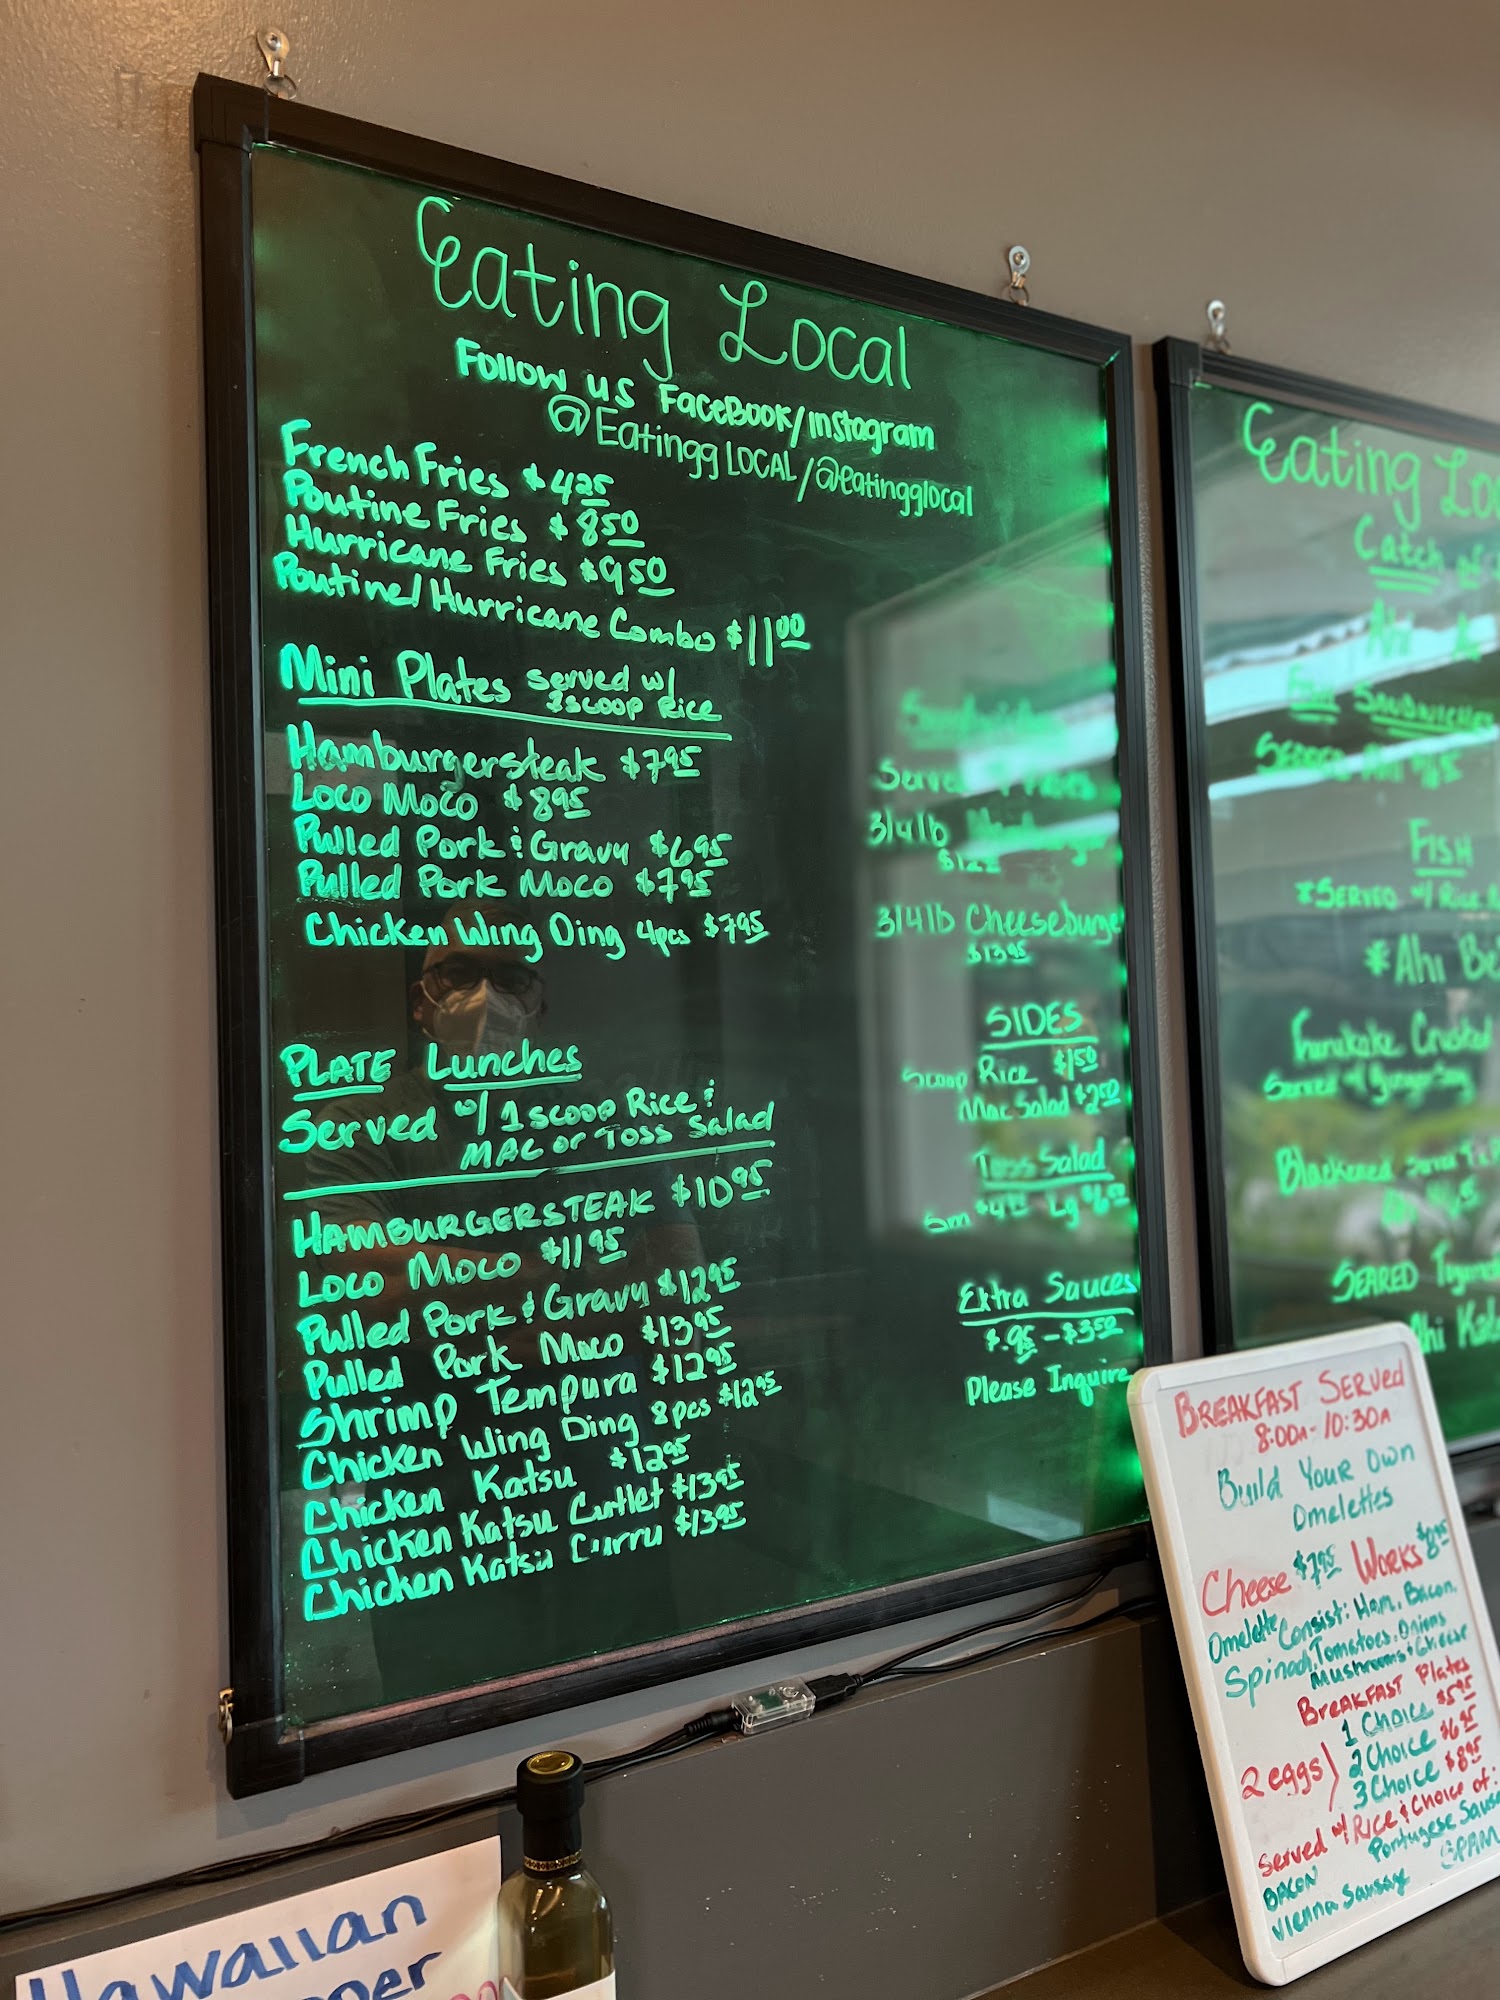 Eating Local
Follow us FaceBook/Instagram
@EatinggLOCAL/@eatingglocal
French Fries $4.25
Poutine Fries $8.50
Hurricane Fries $9.50
Poutine/Hurricane Combo $11.00
Mini Plates served w/
scoop Rice
Hamburgersteak $7.95
Loco Moco $8.95
Pulled Pork & Gravy $6.95
Pulled Pork Moco $7.95
Chicken Wing Ding 4pcs $7.95
PLATE Lunches
Served w/ 1 scoop Rice &
MAC or Toss Salad
HAMBURGERSTEAK $10.95
Loco Moco $11.95
Pulled Pork & Gravy $12.95
Pulled Pork Moco $13.95
Shrimp Tempura $12.95
Chicken Wing Ding 8pcs $12.95
Chicken Katsu $12.95
Chicken Katsu Cutlet $13.95
Chicken Katsu Curry $13.95
Served
3/4lb
3/4lb Cheeseburge
$13.95
SIDES
Scoop Rice $1.50
Mac Salad $2.50
Toss Salad
Sm Lg
Extra Sauces
$.95 - $3.50
Please Inquire
Eating Loc
Catch of
Ahi
FISH SANDWICHES
SEARED Ahi
FISH
*SERVED w/ RICE
*Ahi Be
Furukake Crusted
Served w/
Blackened
SEARED
Ahi Kat
BREAKFAST SERVED
8:00A-10:30A
Build Your Own
Omelettes
Cheese $7.95 Works $8.95
Omelette Consist: Ham, Bacon,
Spinach, Tomatoes, Onions
Mushrooms & Cheese
BREAKFAST Plates
2 eggs) 1 Choice $5.95
2 Choice $6.95
3 Choice $8.95
Served w/ Rice & Choice of:
BACON Portugese Saus
Vienna Sausage SPAM
Hawaiian